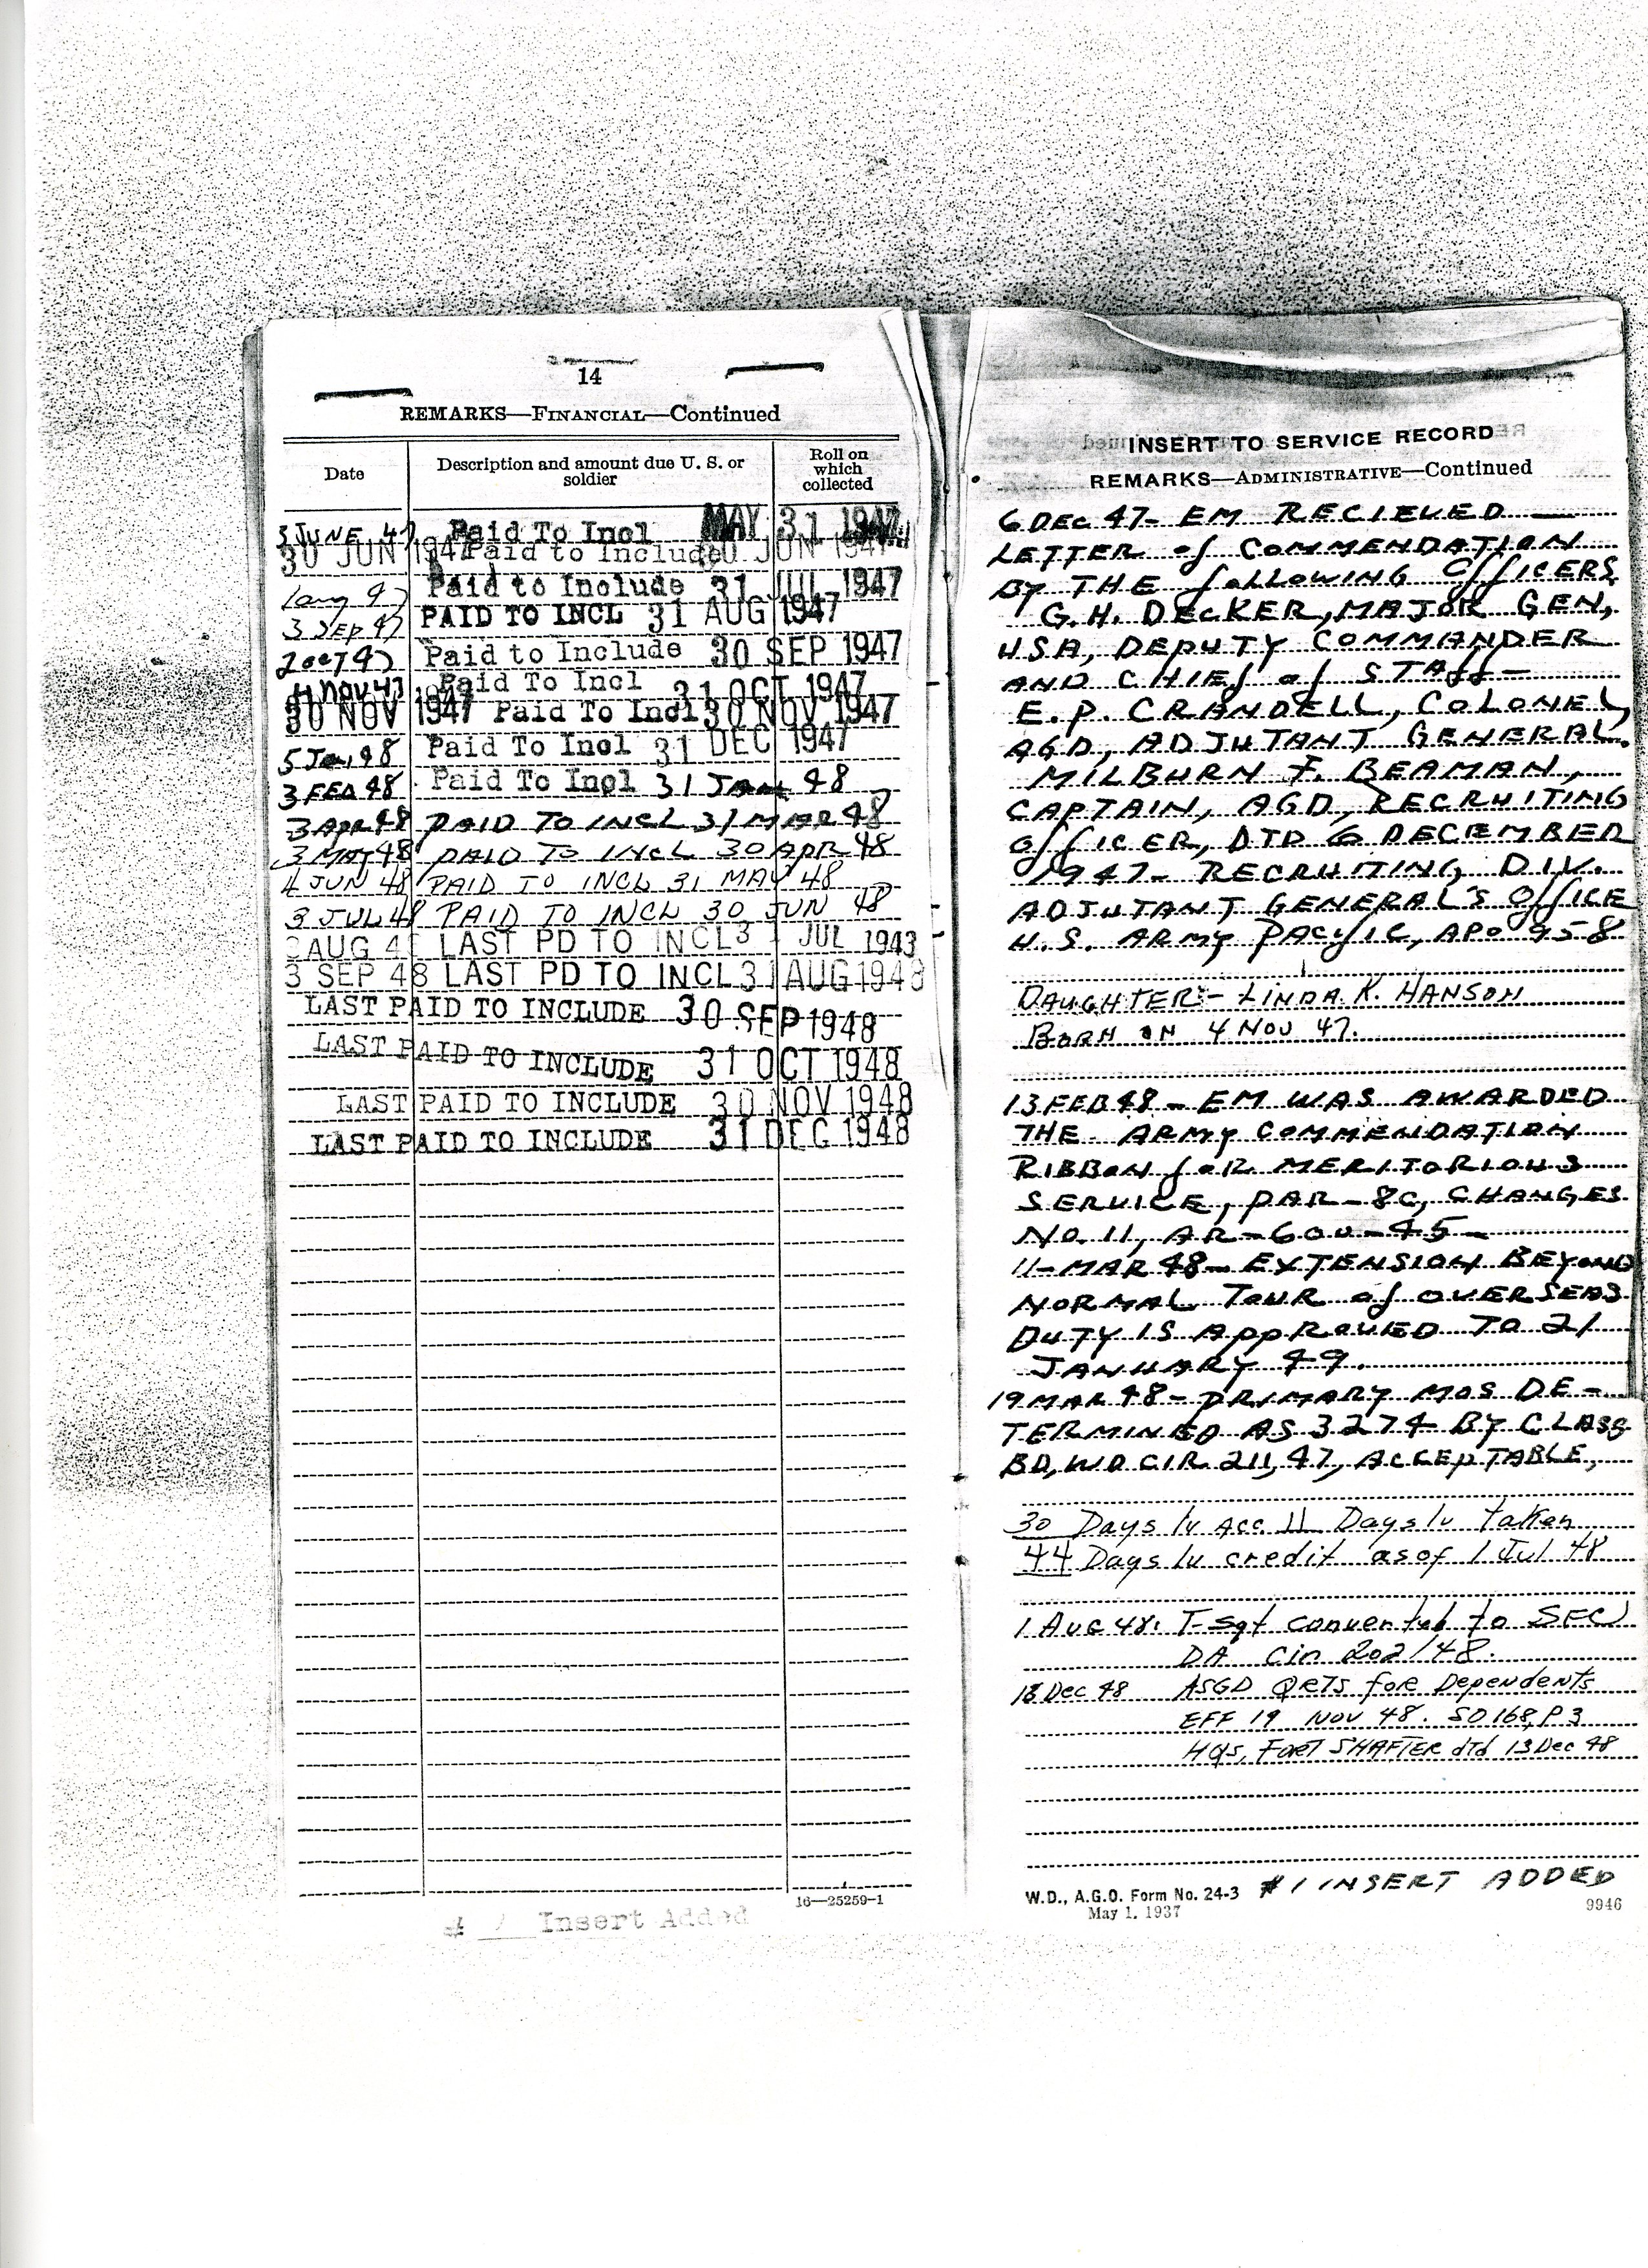 14
REMARKS—FINANCIAL—Continued
Date
Description and amount due U. S. or soldier
Roll on which collected
5 JUNE 47 Paid To Incl MAY 31 1947
30 JUN 1947 Paid to Include 30 JUN 1947
1 aug 47 Paid to Include 31 JUL 1947
3 SEP 47 PAID TO INCL 31 AUG 1947
2 OCT 47 Paid to Include 30 SEP 1947
4 NOV 47 Paid To Incl 31 OCT 1947
30 NOV 1947 Paid To Incl 30 NOV 1947
5 Jan 48 Paid To Incl 31 DEC 1947
3 FEB 48 Paid To Incl 31 JAN 48
3 Apr 48 PAID TO INCL 31 MAR 48
3 MAY 48 PAID TO INCL 30 APR 48
4 JUN 48 PAID TO INCL 31 MAY 48
3 JUL 48 PAID TO INCL 30 JUN 48
AUG 4 LAST PD TO INCL 3 JUL 1943
3 SEP 48 LAST PD TO INCL 31 AUG 1948
LAST PAID TO INCLUDE 30 SEP 1948
LAST PAID TO INCLUDE 31 OCT 1948
LAST PAID TO INCLUDE 30 NOV 1948
LAST PAID TO INCLUDE 31 DEC 1948
16—25259-1
# 1 Insert Added
INSERT TO SERVICE RECORD
REMARKS—ADMINISTRATIVE—Continued
6 DEC 47- EM RECIEVED —
LETTER of COMMENDATION
BY THE following officers
G.H. DECKER, MAJOR GEN,
USA, DEPUTY COMMANDER
AND CHIEF of STAff—
E.P. CRANDELL, COLONEL,
AGD, ADJUTANT GENERAL.
MILBURN F. BEAMAN,
CAPTAIN, AGD, RECRUITING
OfficER, DTD 6 DECEMBER
1947- RECRUITING, DIV.
ADJUTANT GENERAL'S Office
U.S. ARMY PACIfic, APO 958
DAUGHTER:- LINDA. K. HANSON
BORN ON 4 NOV 47.
13 FEB 48- EM WAS AWARDED
THE ARMY COMMENDATION
RIBBON foR MERITORIOUS
SERVICE, PAR-8C, CHANGES
NO. 11, AR-600-45-
11-MAR 48- EXTENSION BEYOND
NORMAL TOUR of OVERSEAS
DUTY IS APPROVED TO 21
JANUARY 49.
19 MAR 48- PRIMARY MOS DE-
TERMINED AS 3274 BY CLASS
BD, WD CIR 211, 47, ACCEPTABLE,
30 Days lv acc 11 Days lv taken
44 Days lv credit as of 1 Jul 48
1 AUG 48. T-Sgt converted to SFC
DA Cir 202/48.
18 Dec 48 ASGD QRTS for Dependents
EFF 19 NOV 48. SO 168, P 3
HQS, FORT SHAFTER dtd 13 Dec 48
W.D., A.G.O. Form No. 24-3 #1 INSERT ADDED
May 1, 1937
9946